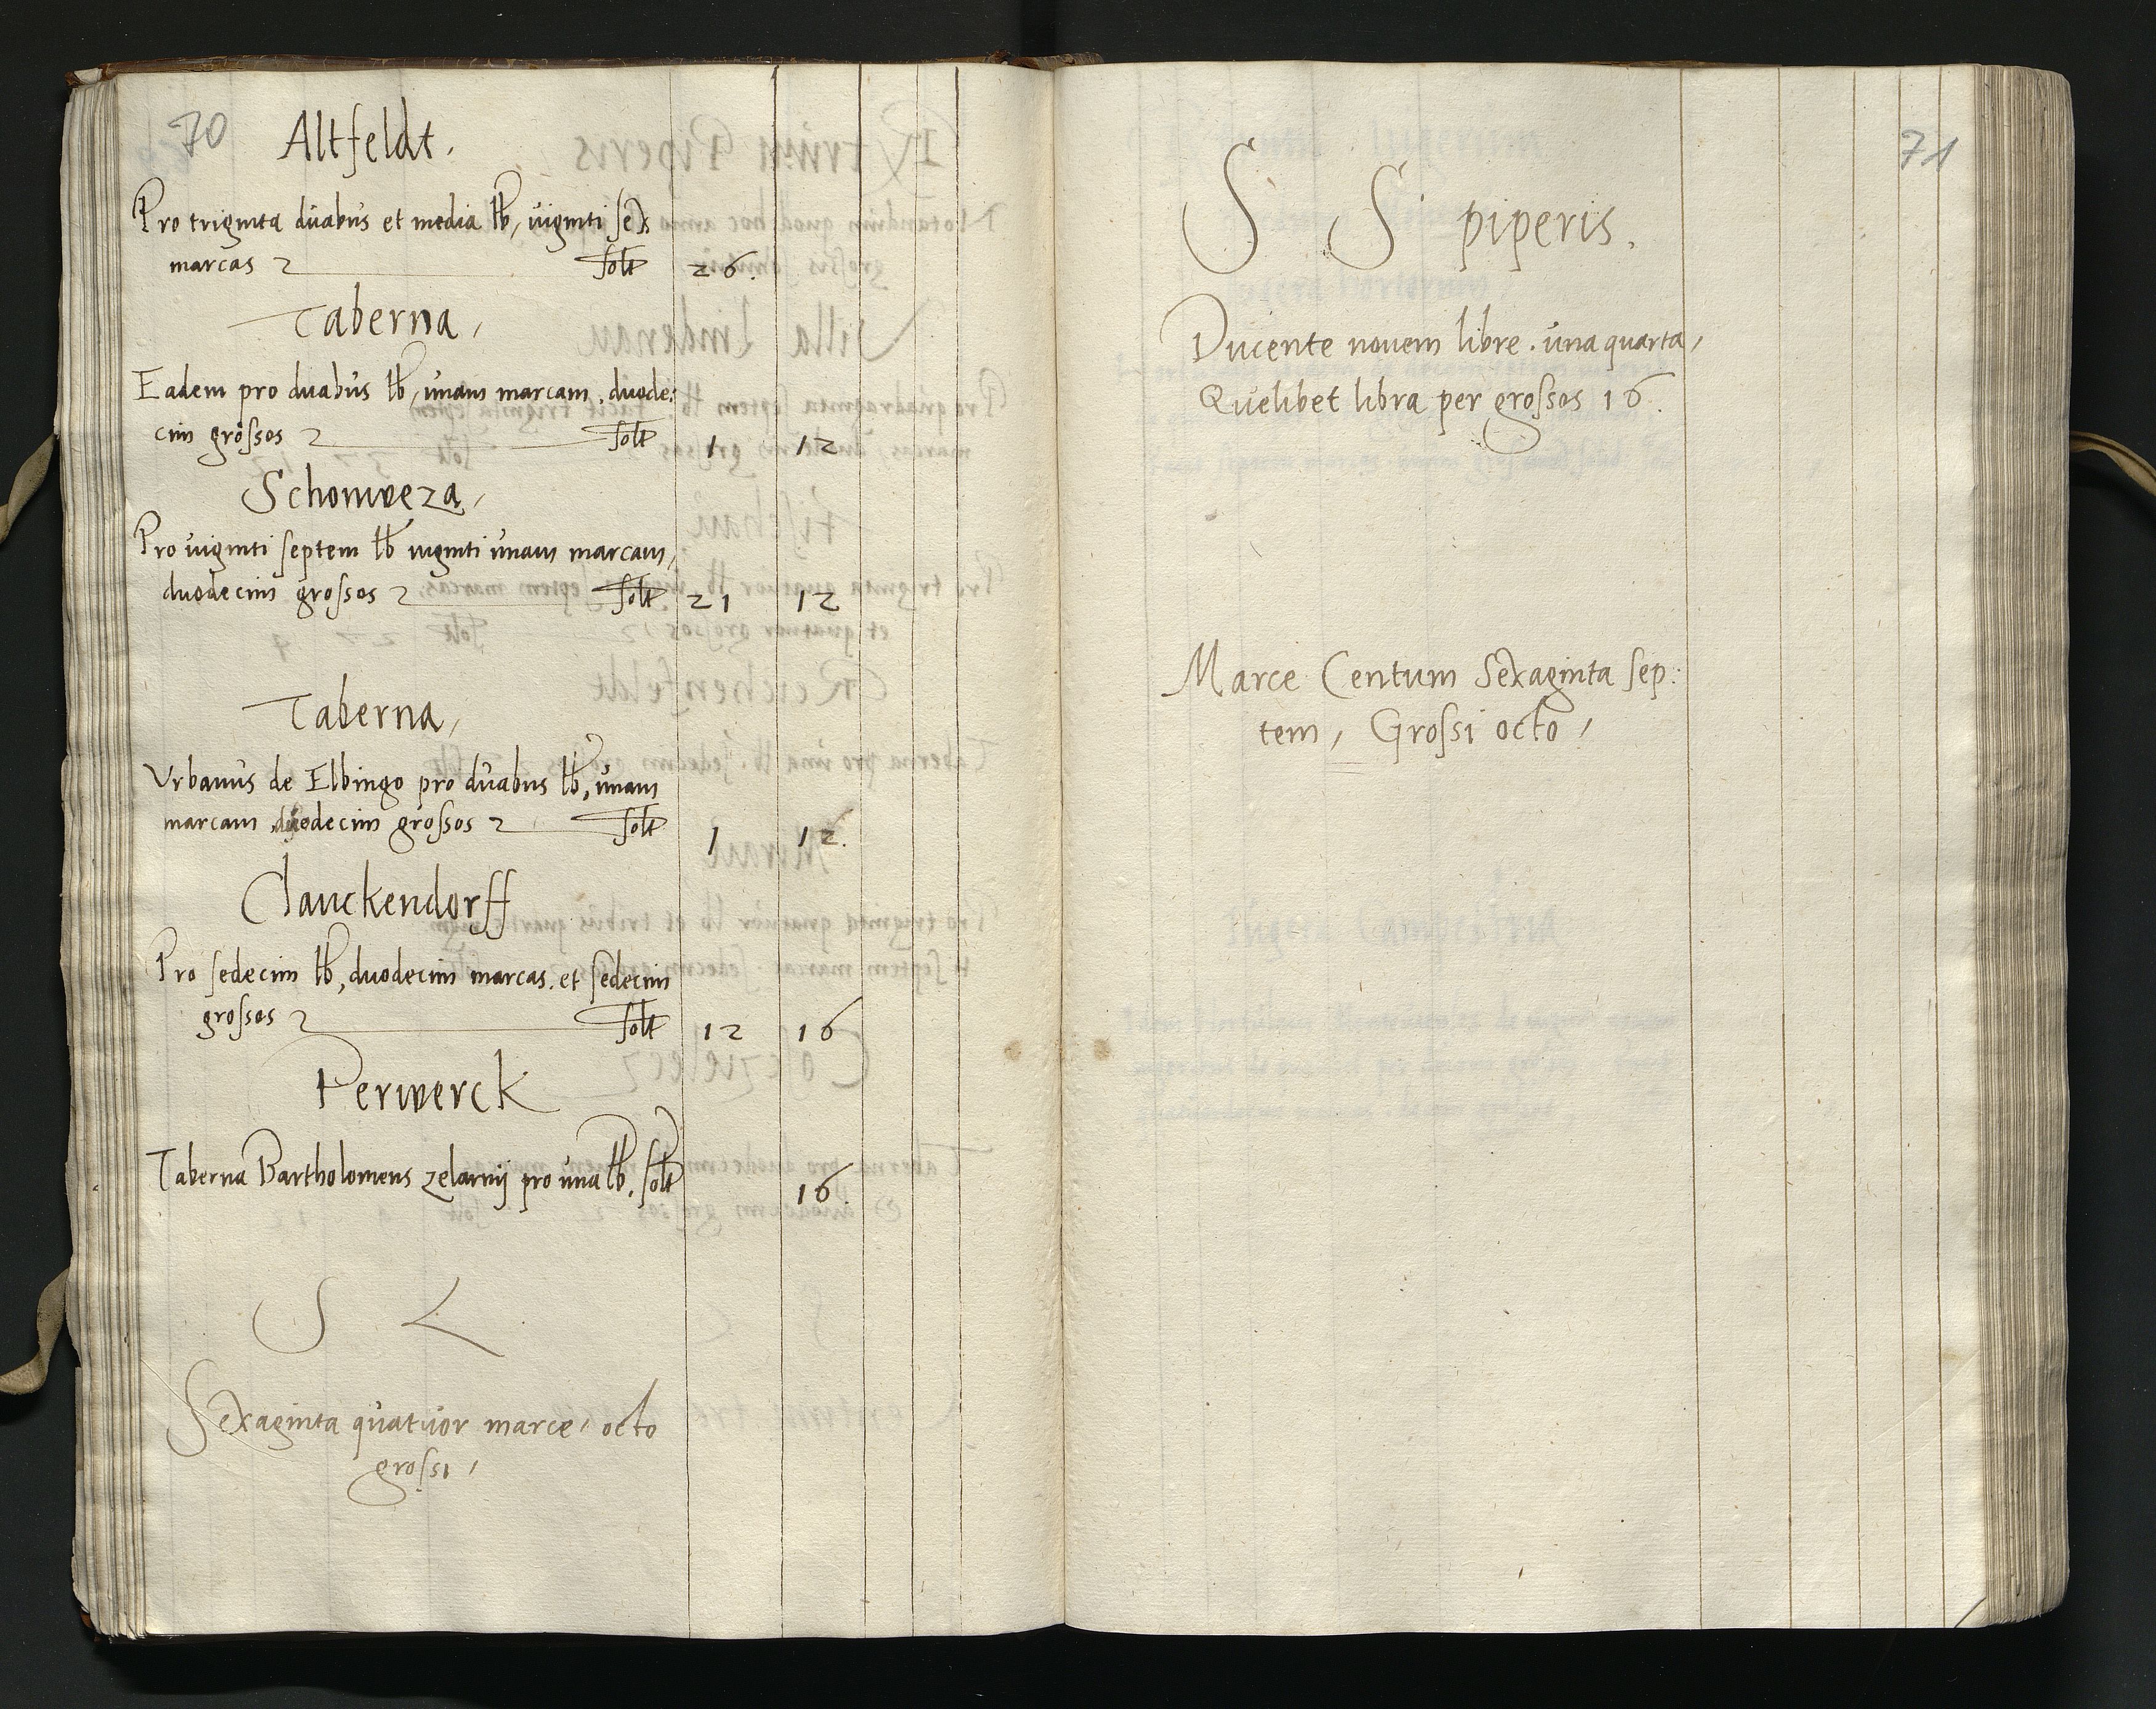 70
Altfeldt.
Pro triginta duabus et media lb, viginti sex
marcas solt 26.
Taberna,
Eadem pro duabus lb, unam marcam, duode:
cim grossos solt 1 12
Schonweza,
Pro viginti septem lb viginti unam marcam,
duodecim grossos solt 21 12
Taberna,
Urbanus de Elbingo pro duabus lb, unam
marcam duodecim grossos solt 1 12.
Clauckendorff
Pro sedecim lb, duodecim marcas. et sedecim
grossos solt 12 16
Perwerck
Taberna Bartholomeus zelarnij pro una lb. solt 16
S L
Sexaginta quatuor marce, octo
grossi,
71
S S piperis.
Ducente novem libre. una quarta,
Quelibet libra per grossos 16.
Marce Centum Sexaginta sep:
tem, Grossi octo,